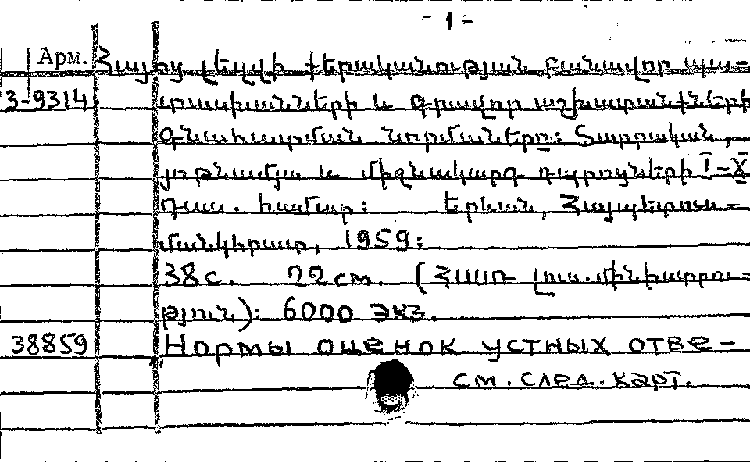 - 1 -
Арм. Հայոց լեզվի քերականության բանավոր պա-
3-9314 տասխանների և գրավոր աշխատանքների
գնահատման նորմաները: Տարրական,
յոթնամյա և միջնակարգ դպրոցների I-X
դաս. համար: Երևան, Հայպետուս-
մանկհրատ, 1959:
38 с. 22 см. (ՀՍՍՌ լուս. մինիստրու-
թյուն): 6000 экз.
38859 Нормы оценок устных отве-
см. след. карт.